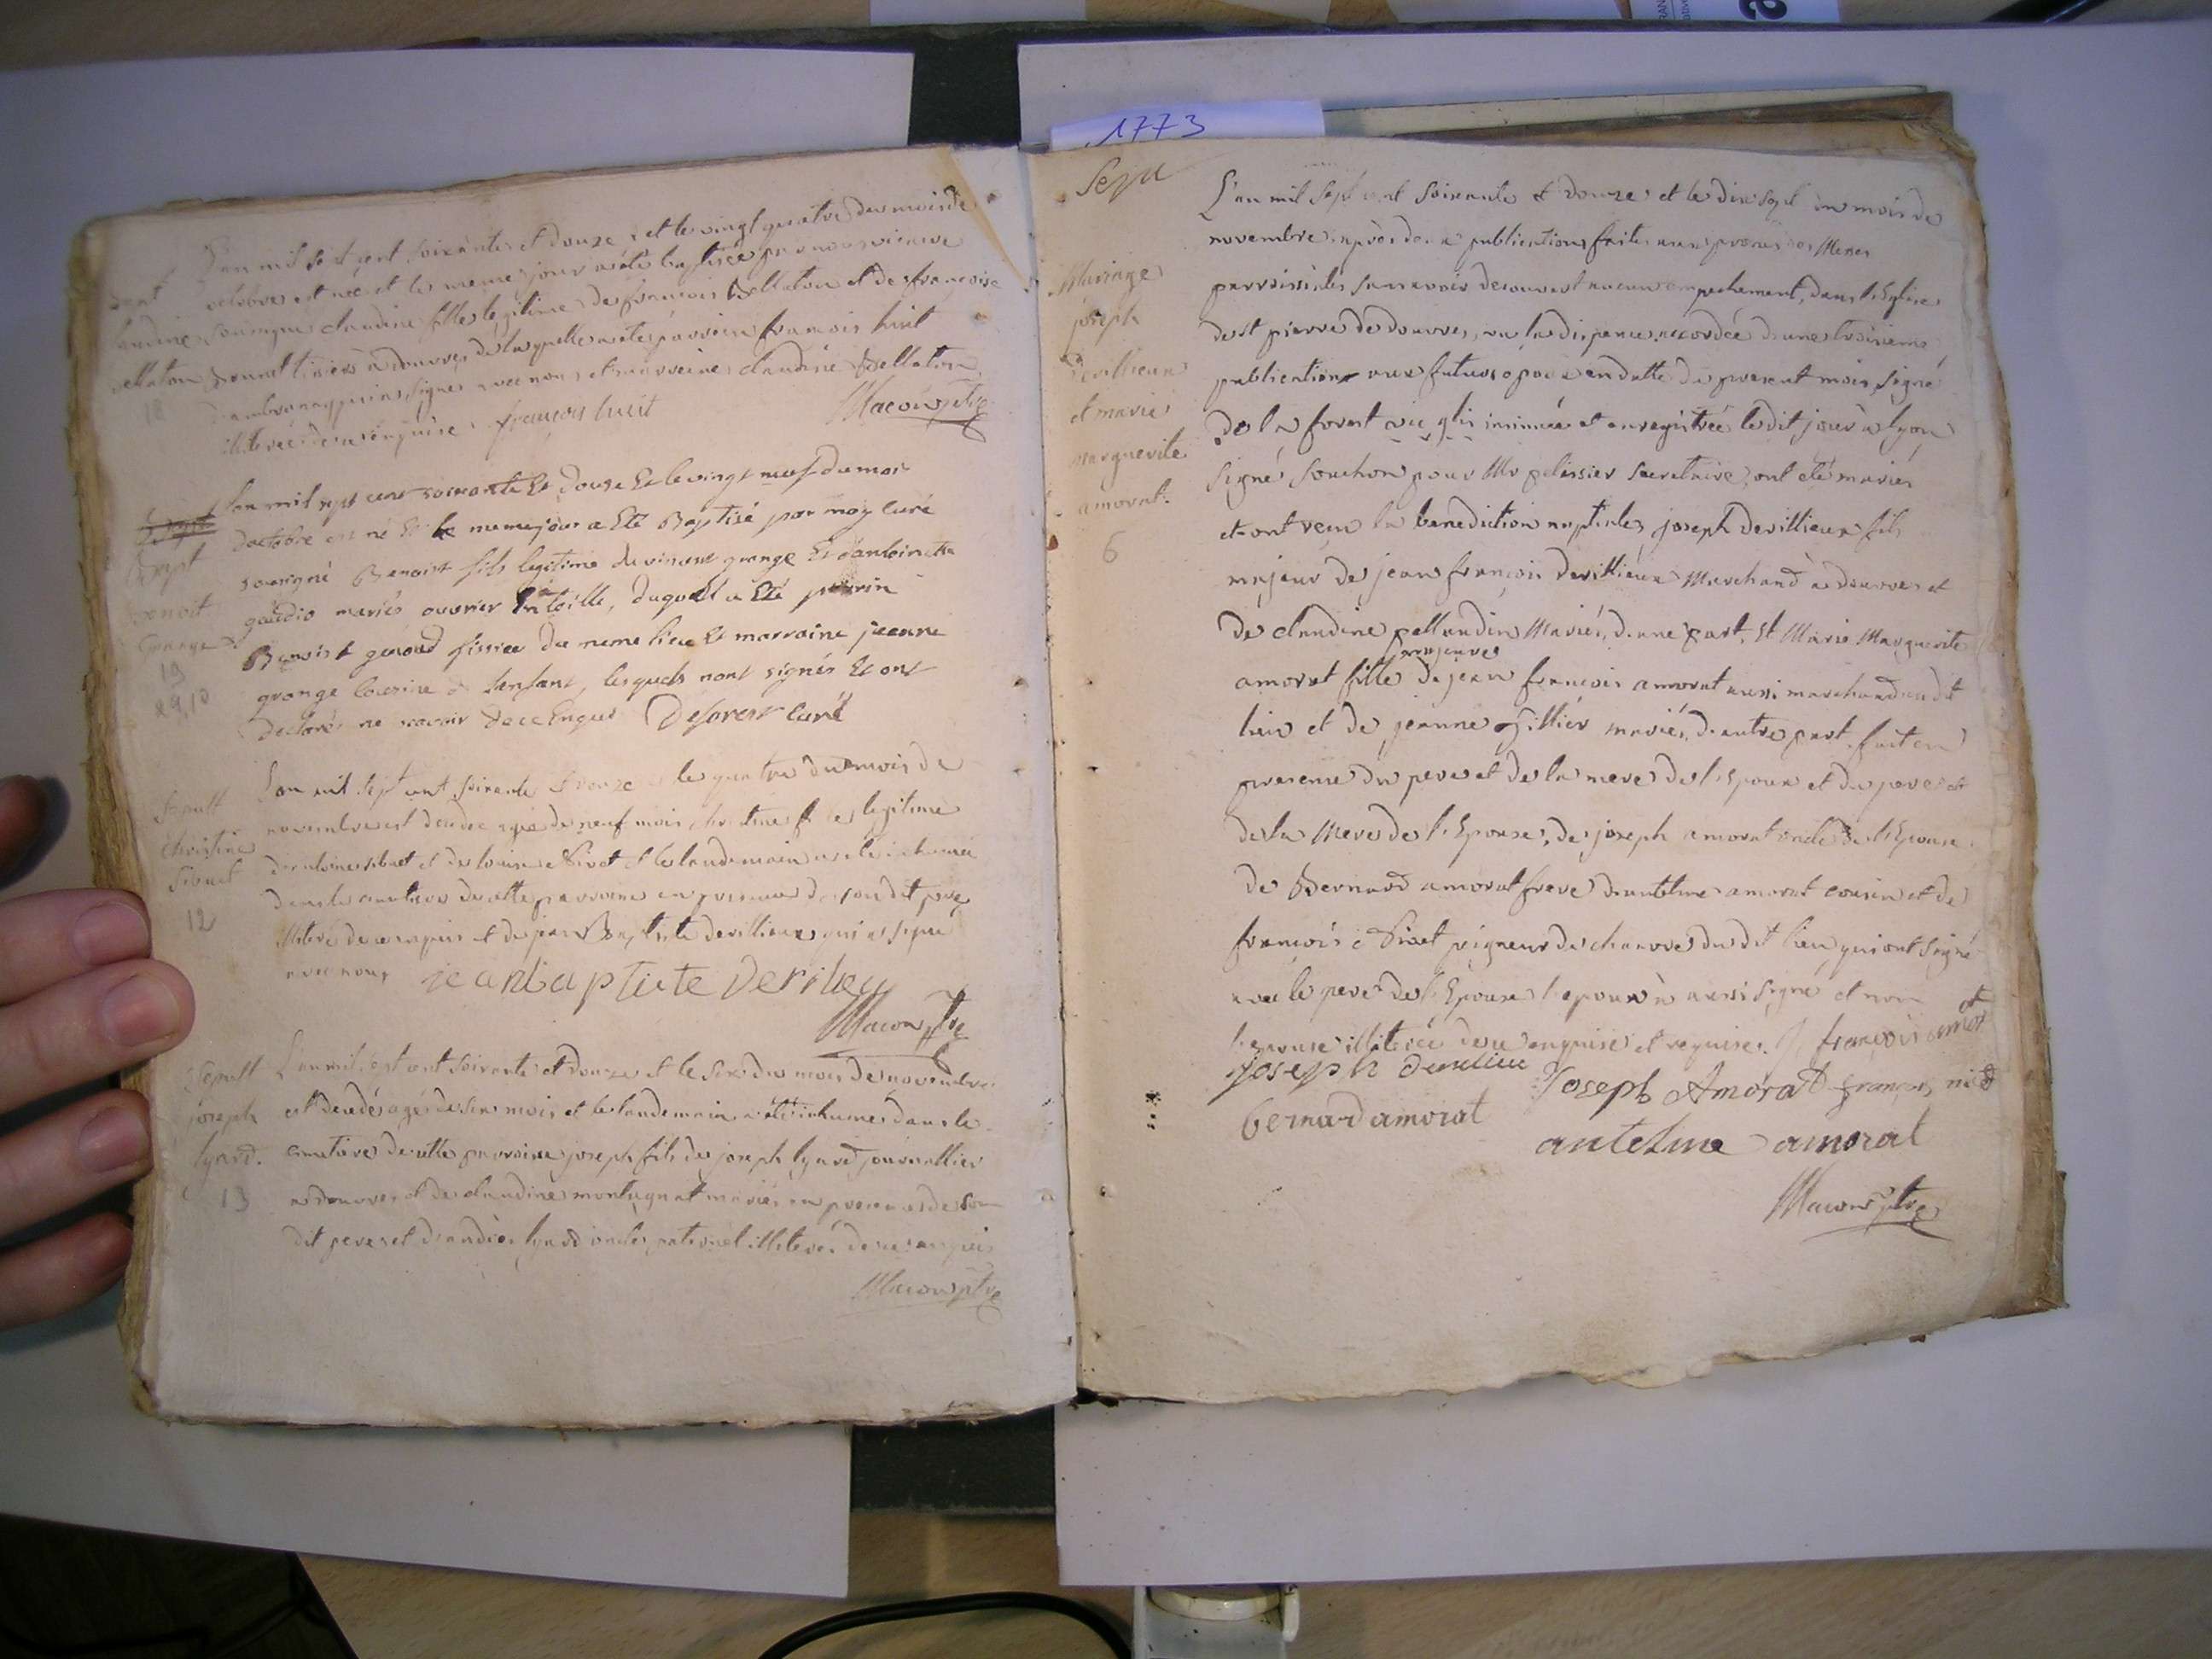 bapt
claudine
bellaton
18
L'an mil sept cent soixante et douze, et le vingt quatre du mois de
octobre est née et le meme jour a été baptisée par nous vicaire
soussigné claudine fille légitime de françois Bellaton et de françoise
brunet tissiers à douvres de laquelle a été parrein françois huit
d'ambronay qui a signé avec nous et marreine claudine Bellaton
illiterée de ce enquise françois huit
Macon ptre
Bapt
benoit
Grange
19
29, 10
L'an mil sept cent soixante Et douze Et le vingt neuf du mois
d'octobre est né Et le meme jour a Eté Baptisé par moy curé
soussigné Benoist fils legitime de vincent grange Et d'antoinette
gaudio mariés ouvrier En toille, duquel a Eté parrin
Benoist genoud tissier du meme lieu Et marraine jeanne
grange cousine de l'enfant, lesquels n'ont signés Et ont
declarés ne savoir de ce Enquis Deforest curé
sepult
christine
sibuet
12
L'an mil sept cent soixante et douze et le quatre du mois de
novembre est decedée agée de neuf mois christine fille legitime
d'antoine sibuet et de louise Nivet et le landemain a été inhumée
dans le cimetiere de cette parroisse en presence de son dit pere
illiteré de ce enquis et de jean Baptiste devillieux qui a signé
avec nous jean baptiste Derilieu
Macon ptre
sepult
joseph
lyard.
13
L'an mil sept cent soixante et douze et le six du mois de novembre
est decedé agé de six mois et le landemain a été inhumé dans le
cimetiere de cette parroisse joseph fils de joseph lyard journallier
a douvres et de claudine montagnat mariés en presence de son
dit pere et d'andré lyard oncle paternel illiterés de ce enquis
Macon ptre
1773
Sepu
Mariage
joseph
devillieux
et marie
marguerite
amorat.
6
L'an mil sept cent soixante et douze et le dix sept du mois de
novembre, après deux publications faites aux prones des Messes
parroissiales sans avoir decouvert aucun empechement, dans l'Eglise
de st pierre de douvres, vu la dispense accordée d'une troisieme
publication aux futurs epoux en datte du present mois, signé
De la forest vic gln insinuée et enregistrée le dit jour à lyon
signé souchon pour Mr pelissier secretaire, ont été mariés
et ont reçu la benediction nuptiale, joseph devillieux fils
majeur de jean françois devillieux Marchand a douvres et
de claudine pallandin Mariés, d'une part, Et Marie Marguerite
majeure
amorat fille de jean françois amorat aussi marchand au dt
lieu et de jeanne Tillier mariés, d'autre part. fait en
presence du pere et de la mere de l'Epoux et du pere et
de la Mere de l'Epouse, de joseph amorat oncle de l'Epouse
de Bernard amorat frere d'antelme amorat cousin et de
françois Nivet peigneur de chanvre du dit lieu, qui ont signé
avec le pere de l'Epouse l'epoux a aussi signé et non
l'epouse illiterée de ce enquise et requise. J. françois amorat
joseph Devilieu Joseph Amorat françois nivet
bernard amorat
antelme amorat
Macon ptre